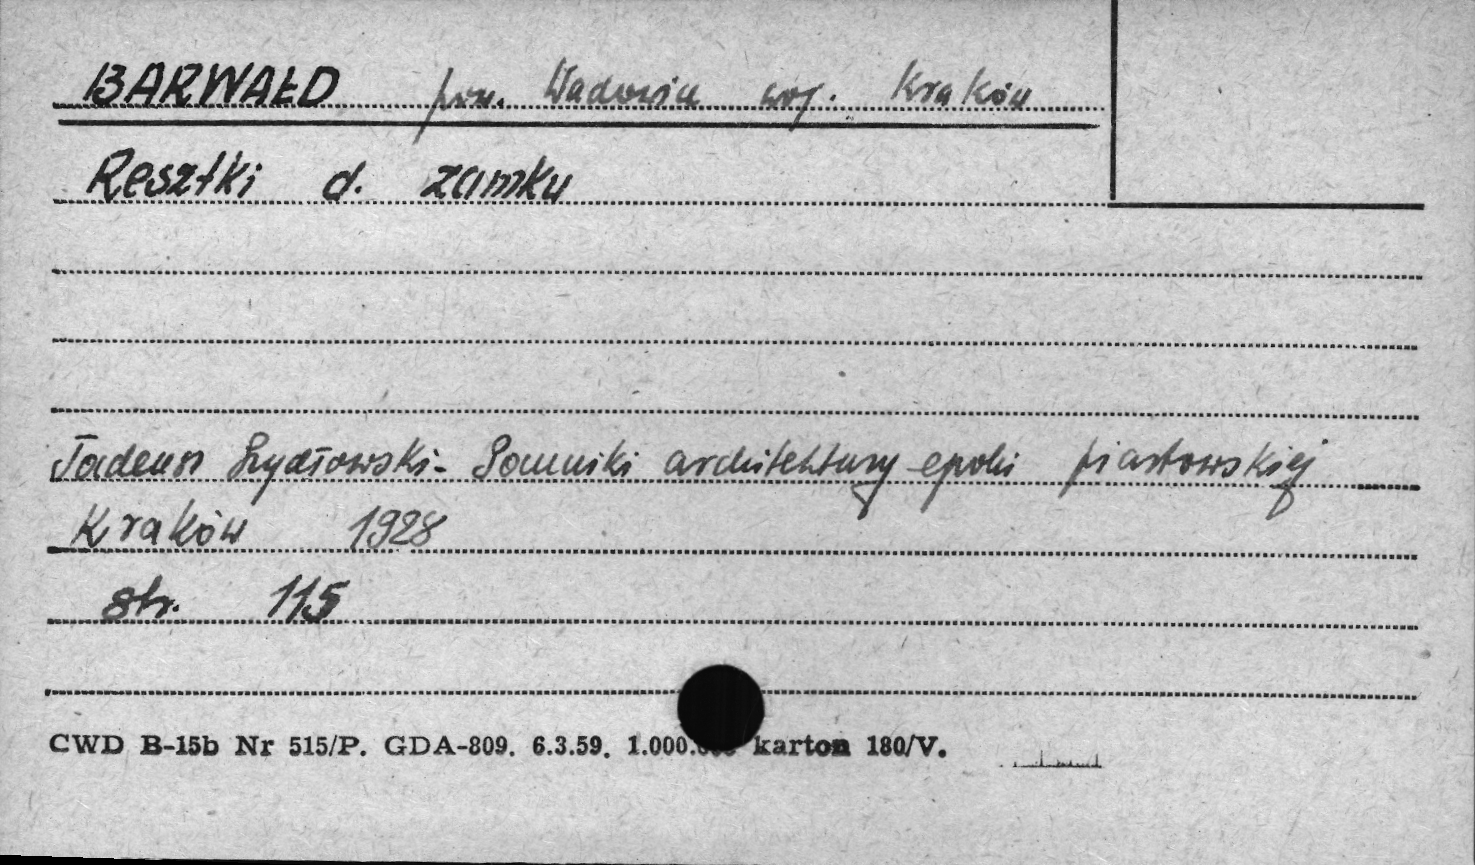 BARWAŁD pow. Wadowice woj. Kraków
Resztki d. zamku
Tadeusz Szydłowski - Pomniki architektury epoki piastowskiej
Kraków 1928
str. 115
CWD B-15b Nr 515/P. GDA-809. 6.3.59. 1.000.000 karton 180/V.